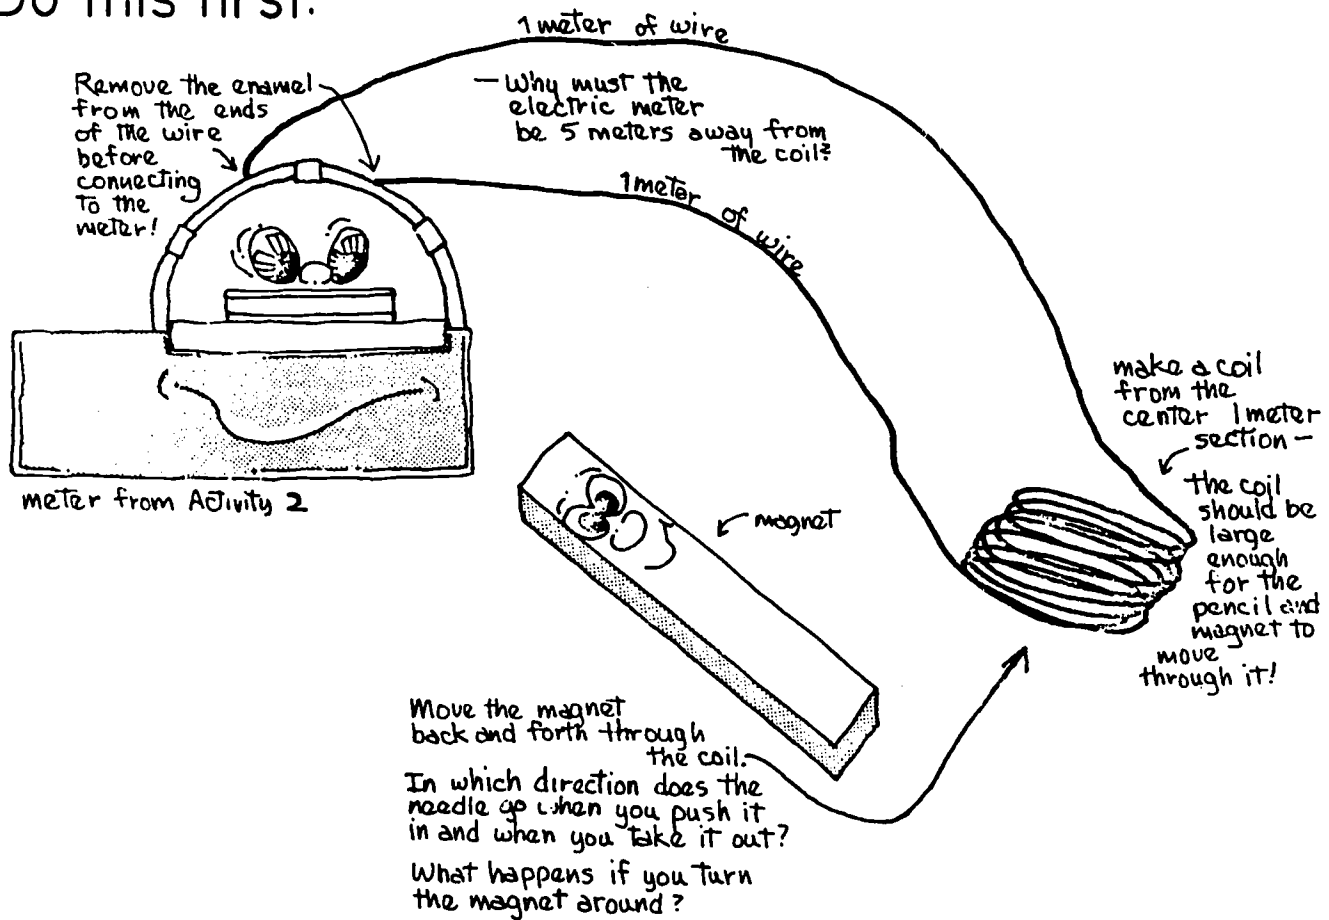 Do this first.
1 meter of wire
Remove the enamel
from the ends
of the wire
before
connecting
to the
meter!
— Why must the
electric meter
be 5 meters away from
the coil?
1 meter of wire
meter from Activity 2
magnet
make a coil
from the
center 1 meter
section —
the coil
should be
large
enough
for the
pencil and
magnet to
move
through it!
Move the magnet
back and forth through
the coil.
In which direction does the
needle go when you push it
in and when you take it out?
What happens if you turn
the magnet around?